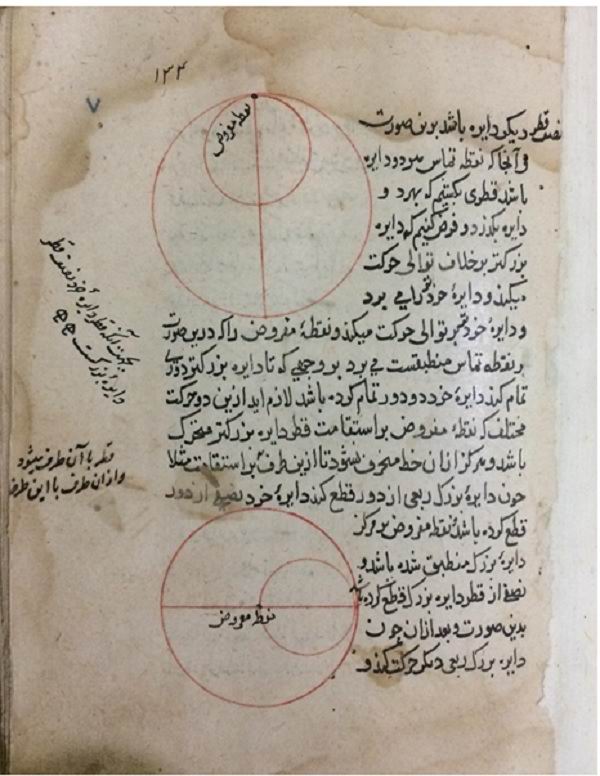 ۱۳۴
۷
نصف قطر دیکر دایره باشد بدین صورت
و آنجا که نقطه تماس بود دو دایره
باشد قطری بکشیم که بهر دو
دایره بکذرد و فرض کنیم که دایره
بزرکتر بر خلاف توالی حرکت
میکند و دایرهٔ خردتر را می برد
و دایرهٔ خردتر بتوالی حرکت میکند و نقطهٔ مفروض را که درین صورت
بر نقطه تماس منطبقست می برد بر وجهی که تا دایره بزرکتر دوری
تمام کند دایرهٔ خرد دو دور تمام کرده باشد لازم اید ازین دو حرکت
مختلف که نقطهٔ مفروض بر استقامت قطر دایره بزرکتر متحرک
باشد و هرکز از ان خط منحرف نشود تا ازین طرف بر استقامت مثلا
چون دایرهٔ بزرک ربعی از دور قطع کند دایرهٔ خرد نصفی از دور
قطع کرده باشد و نقطه مفروض بر مرکز
دایرهٔ بزرک منطبق شده باشد و
نصفی از قطر دایره بزرک قطع کرده باشد
بدین صورت و بعد از ان چون
دایره بزرک ربعی دیکر حرکت کند و
نقطه مفروض
نقطه مفروض
قطر دایرهٔ خرد نصف قطر
دایره بزرکست
نقطه با آن طرف میشود
و از ان طرف با این طرف